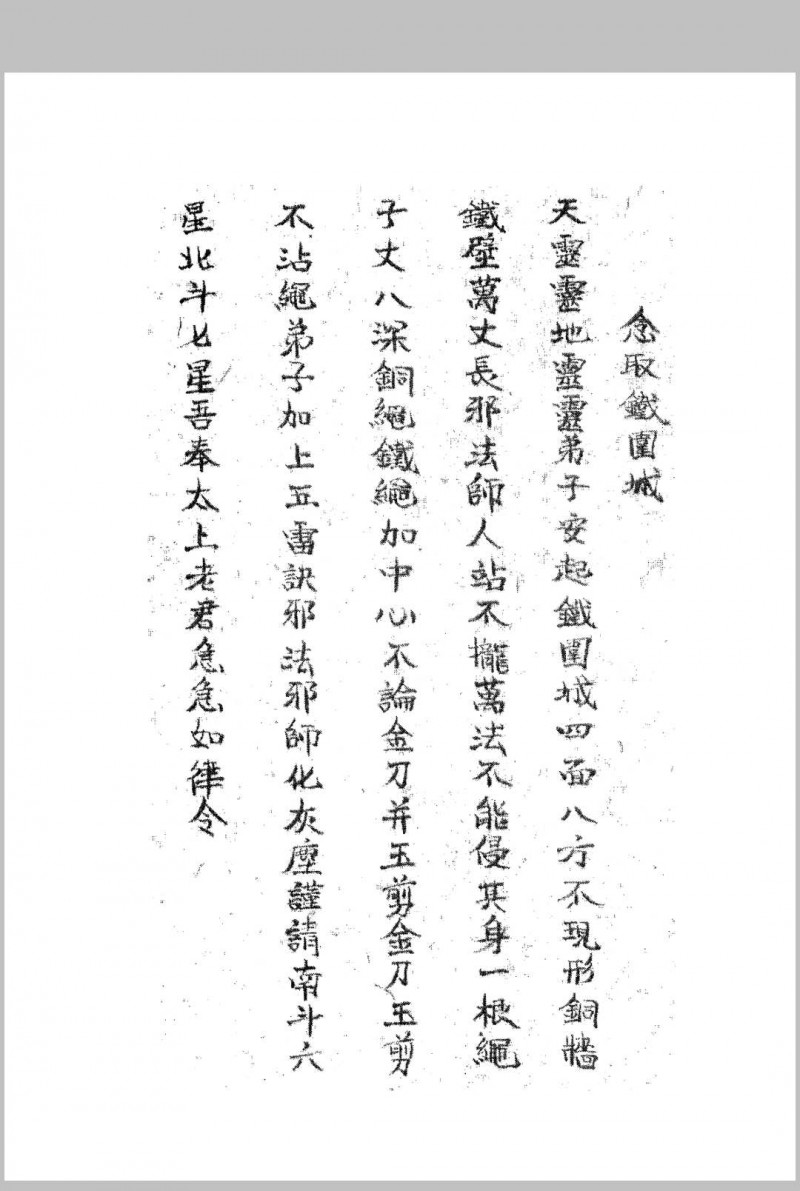 念取鐵圍城
天靈靈地靈靈弟子安起鐵圍城四面八方不現形銅牆
鐵壁萬丈長邪法師人站不攏萬法不能侵其身一根繩
子丈八深銅繩鐵繩加中心不論金刀并玉剪金刀玉剪
不沾繩弟子加上五雷訣邪法邪師化灰塵謹請南斗六
星北斗七星吾奉太上老君急急如律令